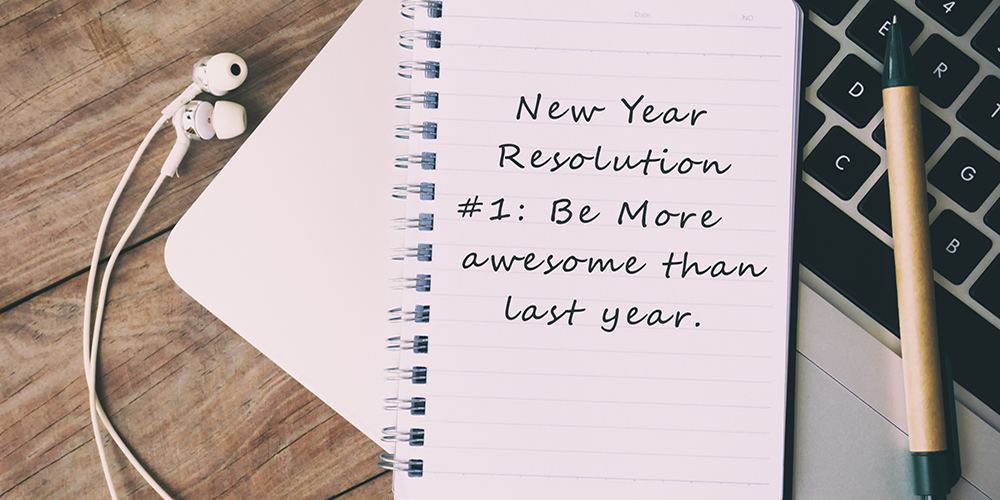 Date
NO.
New Year
Resolution
#1: Be More
awesome than
last year.
4
E
R
D
T
C
G
B